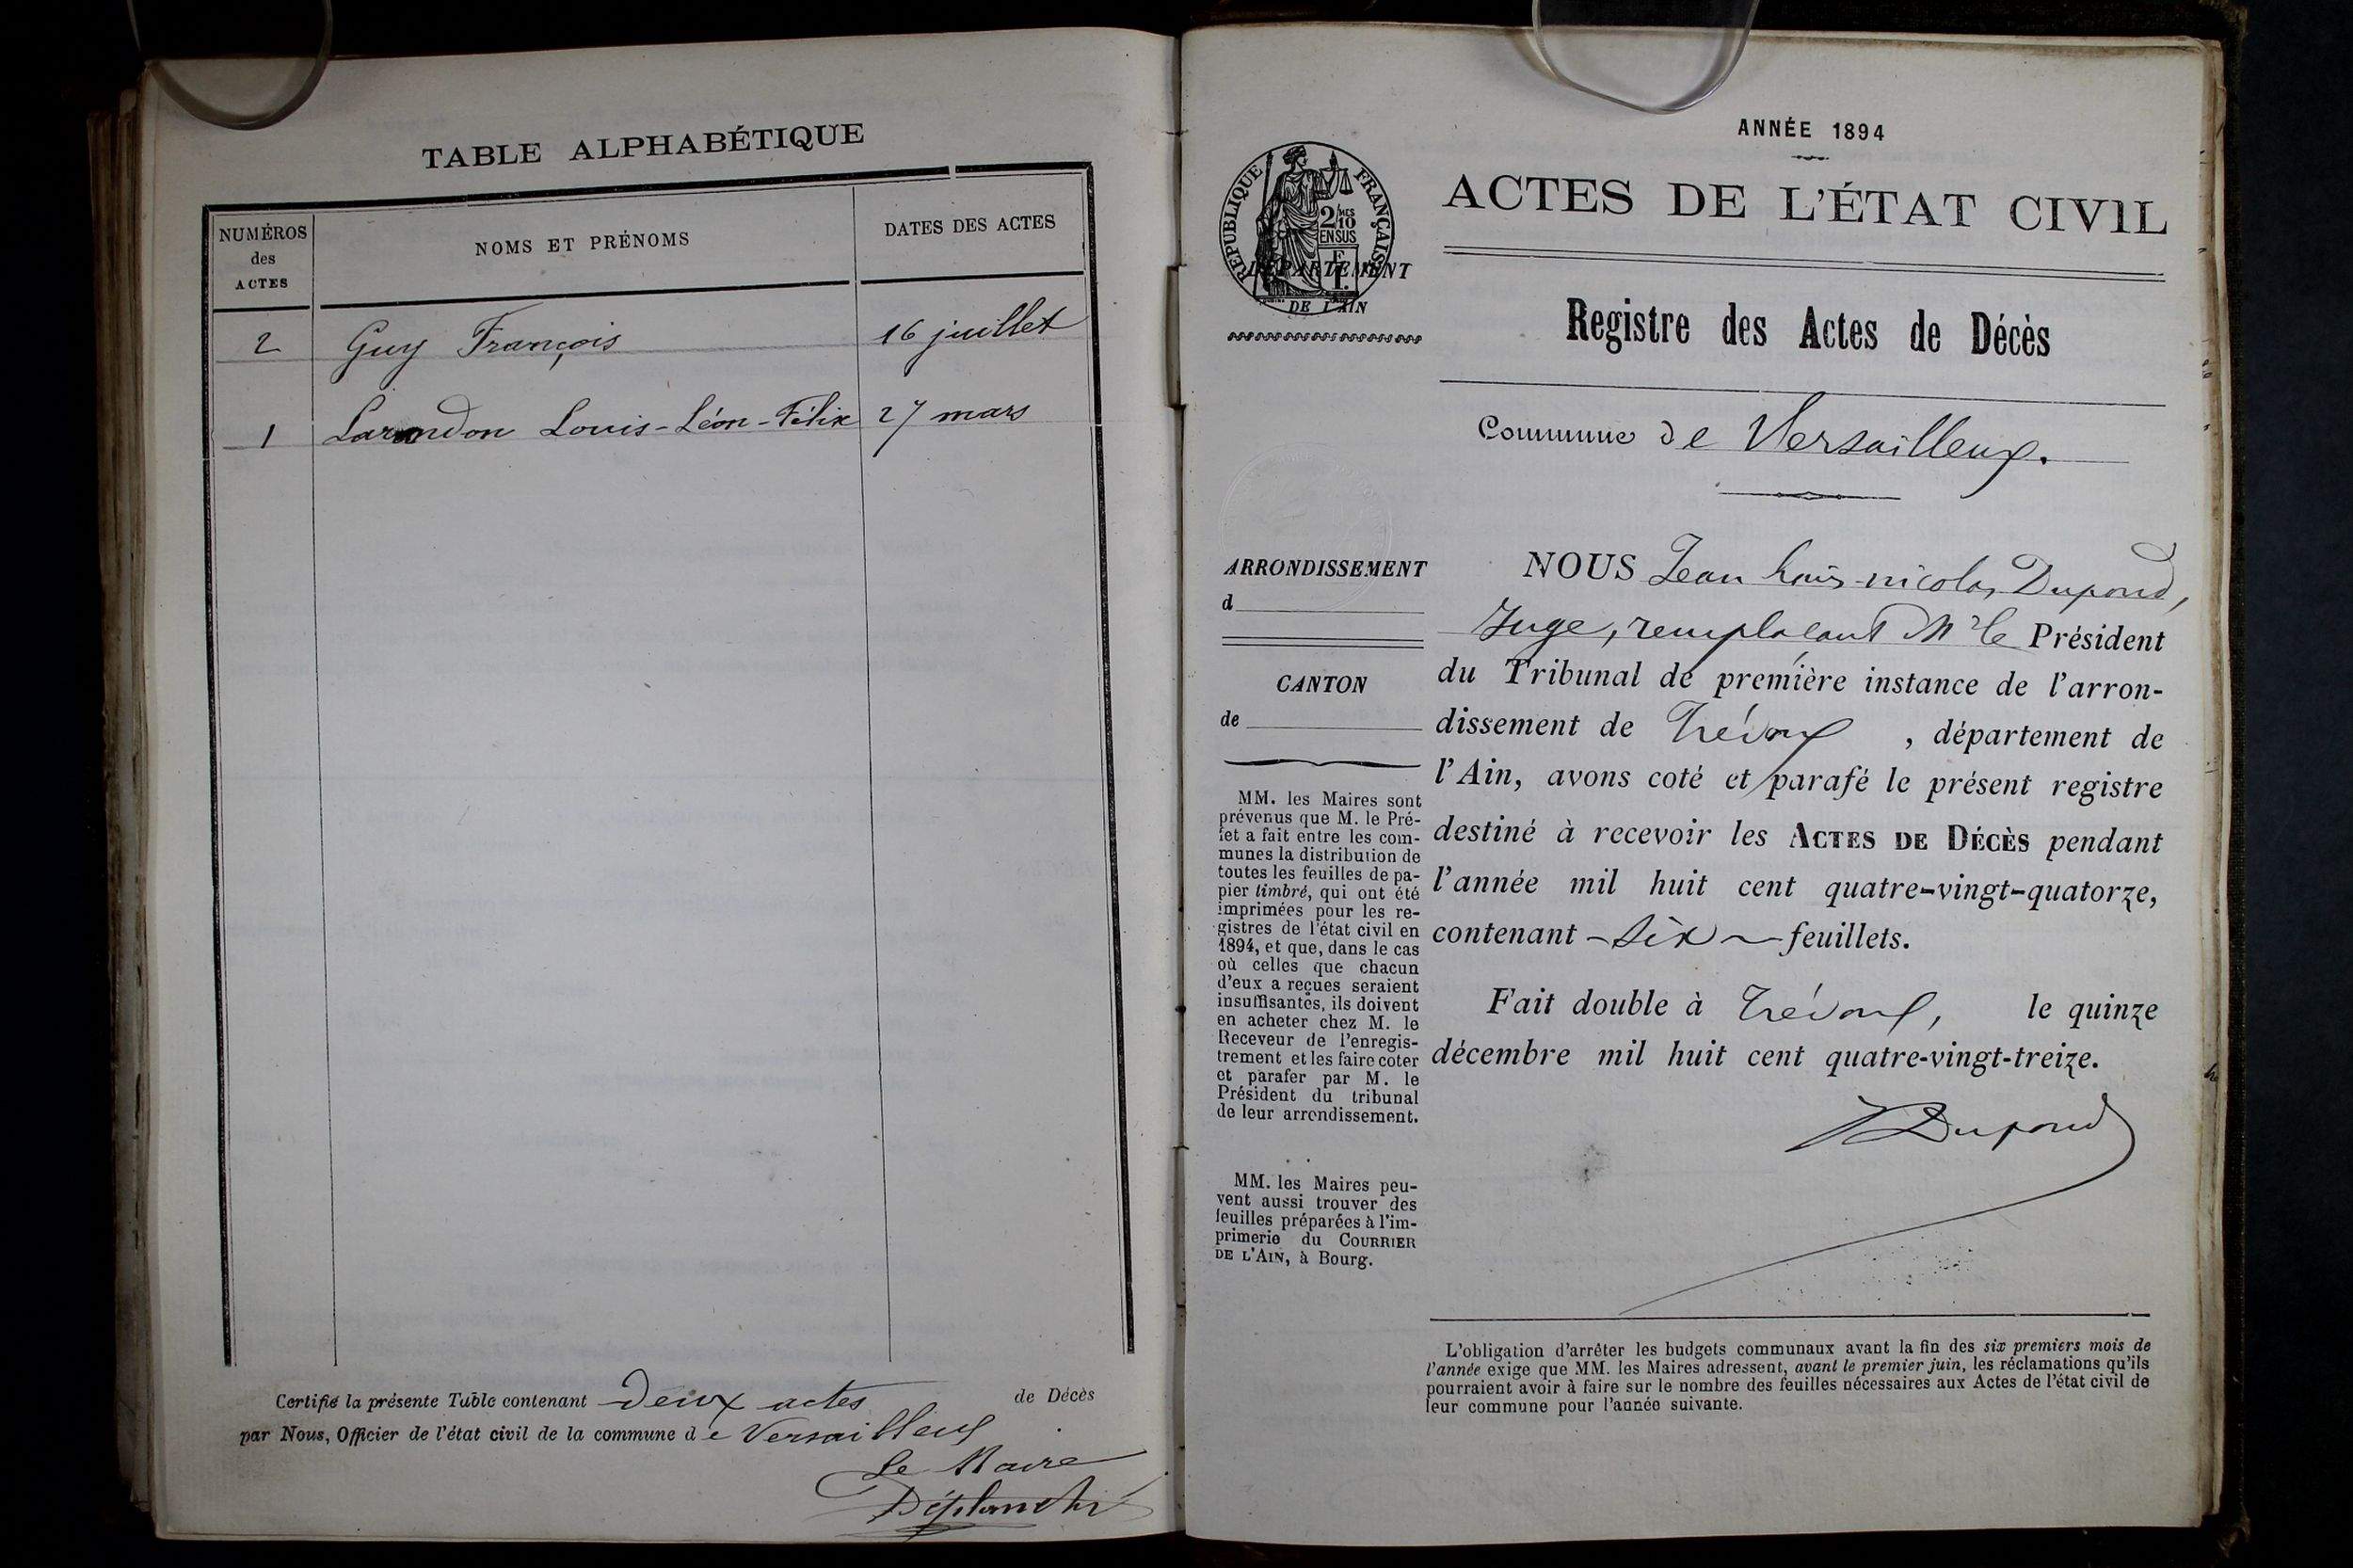 TABLE ALPHABÉTIQUE
NUMÉROS
des
ACTES
NOMS ET PRÉNOMS
DATES DES ACTES
2 Guy François 16 juillet
1 Louis-Léon-Félix 27 mars
Certifié la présente Table contenant deux actes de Décès
par Nous, Officier de l'état civil de la commune de Versailleux
Le Maire
ANNÉE 1894
ACTES DE L'ÉTAT CIVIL
RÉPUBLIQUE FRANÇAISE
2/10
EN SUS
DÉPARTEMENT
DE L'AIN
Registre des Actes de Décès
Commune de Versailleux.
ARRONDISSEMENT
d
CANTON
de
MM. les Maires sont
prévenus que M. le Pré-
fet a fait entre les com-
munes la distribution de
toutes les feuilles de pa-
pier timbré, qui ont été
imprimées pour les re-
gistres de l'état civil en
1894, et que, dans le cas
où celles que chacun
d'eux a reçues seraient
insuffisantes, ils doivent
en acheter chez M. le
Receveur de l'enregis-
trement et les faire coter
et parafer par M. le
Président du tribunal
de leur arrondissement.
MM. les Maires peu-
vent aussi trouver des
feuilles préparées à l'im-
primerie du COURRIER
DE L'AIN, à Bourg.
NOUS Jean Louis-nicolas Dupond,
Juge, remplaçant Mr le Président
du Tribunal de première instance de l'arron-
dissement de Trévoux, département de
l'Ain, avons coté et parafé le présent registre
destiné à recevoir les ACTES DE DÉCÈS pendant
l'année mil huit cent quatre-vingt-quatorze,
contenant - six - feuillets.
Fait double à Trévoux, le quinze
décembre mil huit cent quatre-vingt-treize.
Dupond
L'obligation d'arrêter les budgets communaux avant la fin des six premiers mois de
l'année exige que MM. les Maires adressent, avant le premier juin, les réclamations qu'ils
pourraient avoir à faire sur le nombre des feuilles nécessaires aux Actes de l'état civil de
leur commune pour l'année suivante.